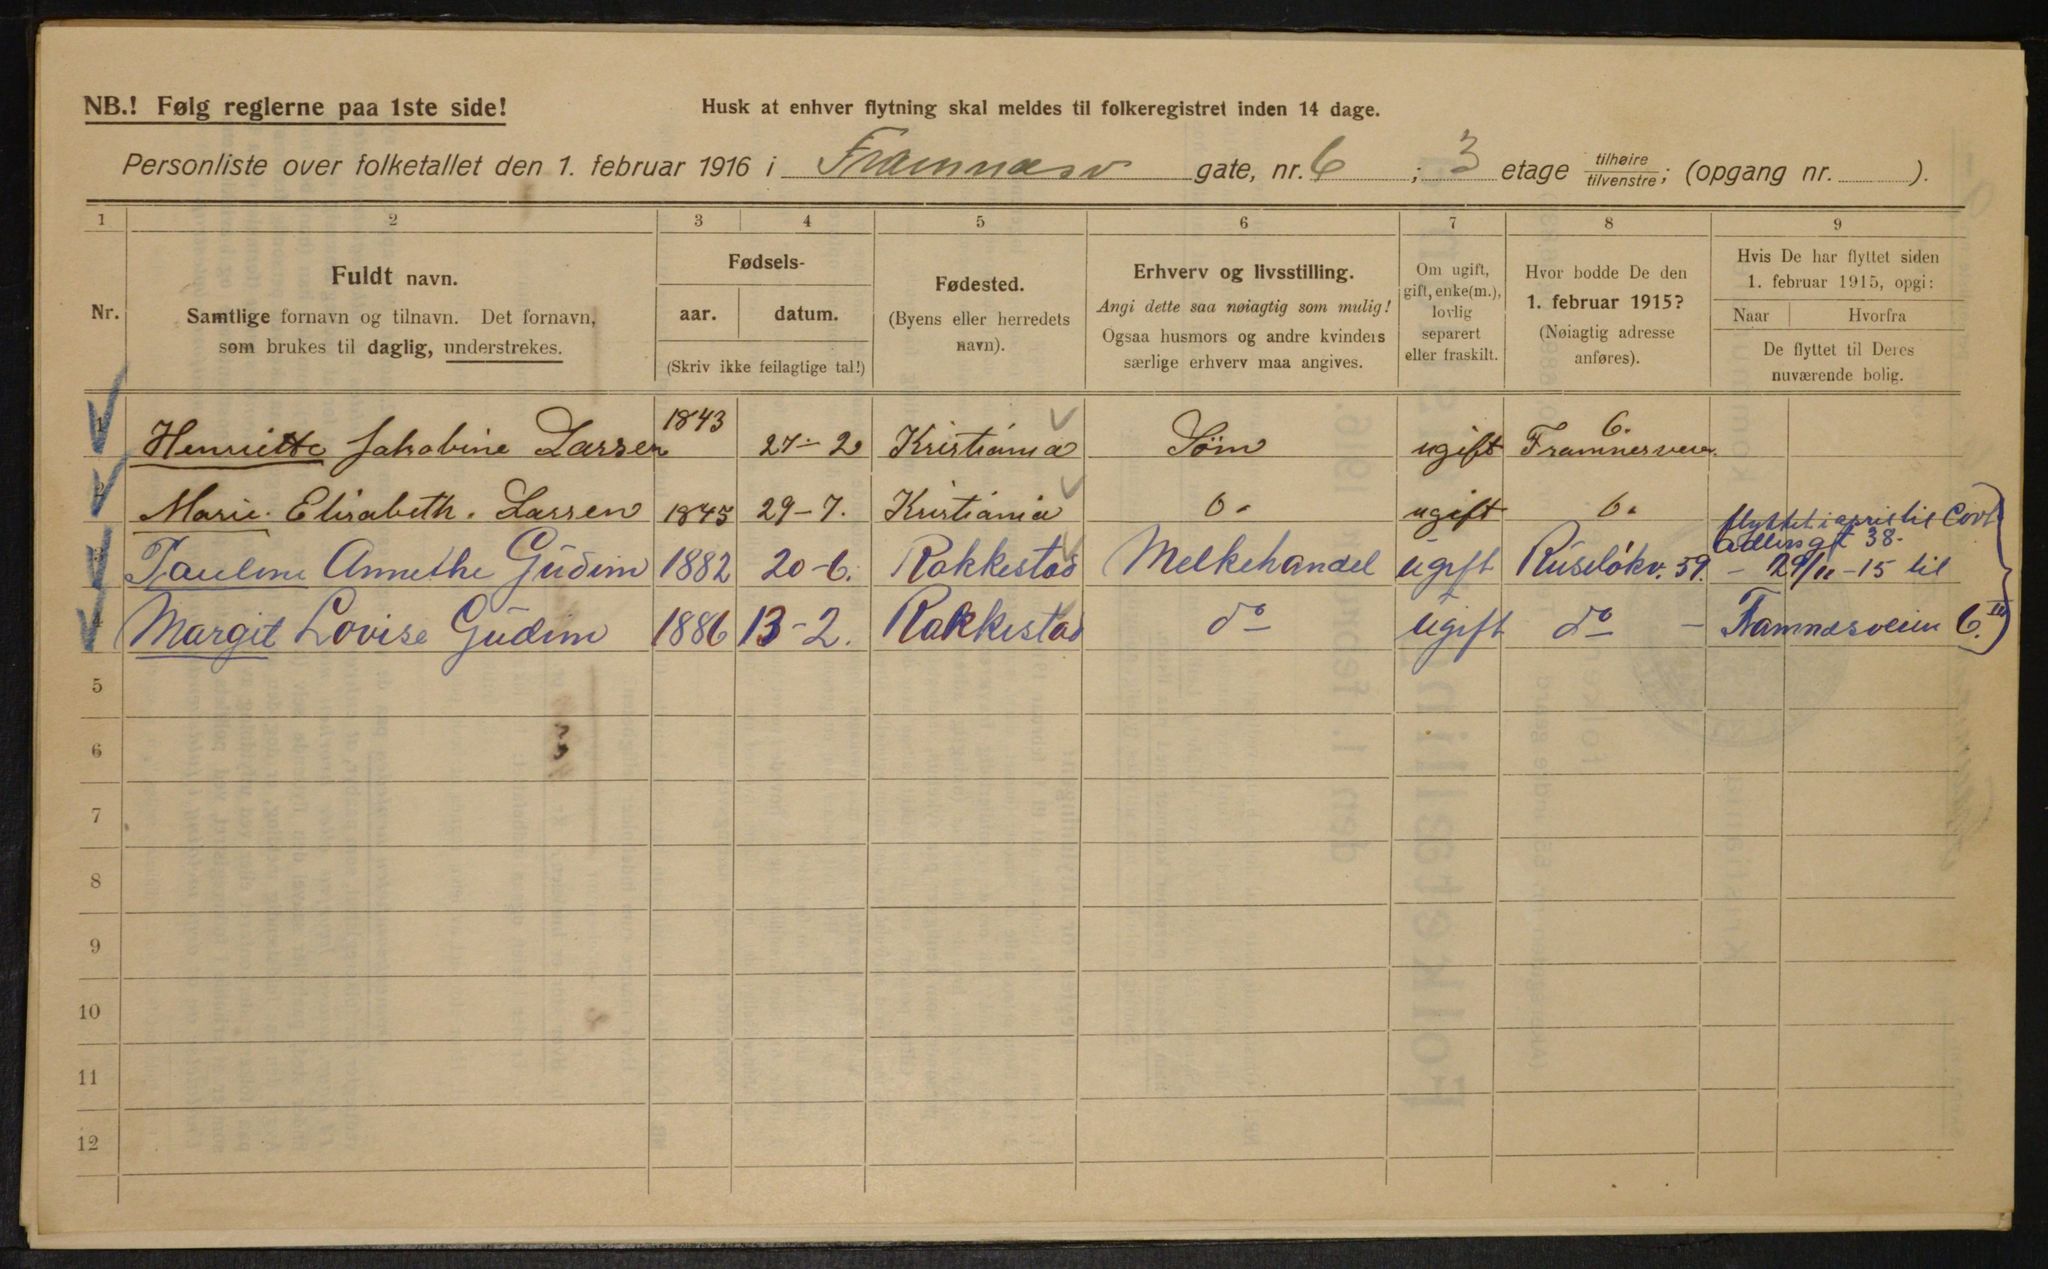 NB.! Følg reglerne paa 1ste side!
Husk at enhver flytning skal meldes til folkeregistret inden 14 dage.
Personliste over folketallet den 1. februar 1916 i Framnæsv gate, nr. 6 ; 3 etage tilhøire/tilvenstre; (opgang nr. ).
1 2 3 4 5 6 7 8 9
Nr.
Fuldt navn.
Samtlige fornavn og tilnavn. Det fornavn,
som brukes til daglig, understrekes.
Fødsels-
aar. datum.
(Skriv ikke feilagtige tal!)
Fødested.
(Byens eller herredets
navn).
Erhverv og livsstilling.
Angi dette saa nøiagtig som mulig!
Ogsaa husmors og andre kvinders
særlige erhverv maa angives.
Om ugift,
gift, enke(m.),
lovlig
separert
eller fraskilt.
Hvor bodde De den
1. februar 1915?
(Nøiagtig adresse
anføres).
Hvis De har flyttet siden
1. februar 1915, opgi:
Naar Hvorfra
De flyttet til Deres
nuværende bolig.
1 Henriette Jakobine Larsen 1843 27-2 Kristiania Søm ugift 6. Framnesveien
2 Marie. Elisabeth. Larsen 1845 29-7. Kristiania 0. ugift 6.
flyttet i april til Cort
Adlersgt 38.
3 Pauline Annethe Gudim 1882 20-6. Rakkestad Melkehandel ugift Ruseløkv. 59. - 29/11-15 til
4 Margit Lovise Gudim 1886 13-2. Rakkestad do ugift do - Framnæsveien 6. III
5
6
7
8
9
10
11
12